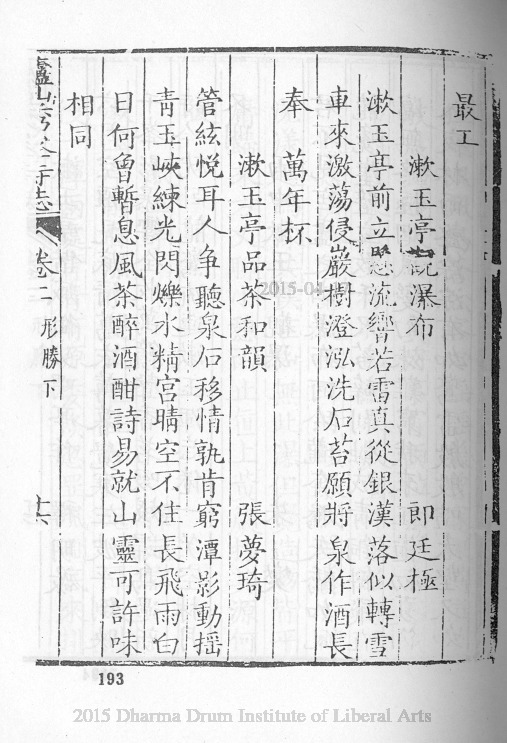 最工
漱玉亭觀瀑布　郎廷極
漱玉亭前立懸流響若雷真從銀漢落似轉雪
車來激蕩侵巖樹澄泓洗石苔願將泉作酒長
奉　萬年杯
漱玉亭品茶和韻　張夢琦
管絃悅耳人争聽泉石移情孰肯窮潭影動揺
靑玉峽練光閃爍水精宮晴空不住長飛雨白
日何曾暫息風茶醉酒酣詩易就山靈可許味
相同
廬山秀峯寺志　卷二　形勝下　十六
193
2015-04
2015 Dharma Drum Institute of Liberal Arts